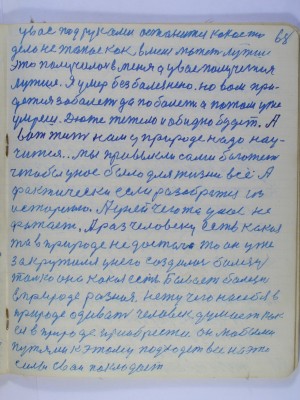 у вас под руками останится какоето 68
дело не такое как в меня может лутше
это получилось в меня а у вас получется
лутше. Я умер безболезнено. но вам при-
дется заболеть да поболеть а потом уже
умереть. Дюже тежело и обидно будет. А
вот жить нам у природе надо нау-
читься.. мы привыкли сами богатеть
чтобы у нас было для жизни всё А
фактически если разобратся
историю. А у ней чегото у нас не
фатает. А раз человеку есть какая
та в природе недостача то он уже
закружился у него создались болезни
только она какая есть. Бывает болезнь
в природе разная. нету чего на себя в
природе одевать человек думает как
в природе приобрести он любыми
путями к этому подходет все на это
силы свои покладает